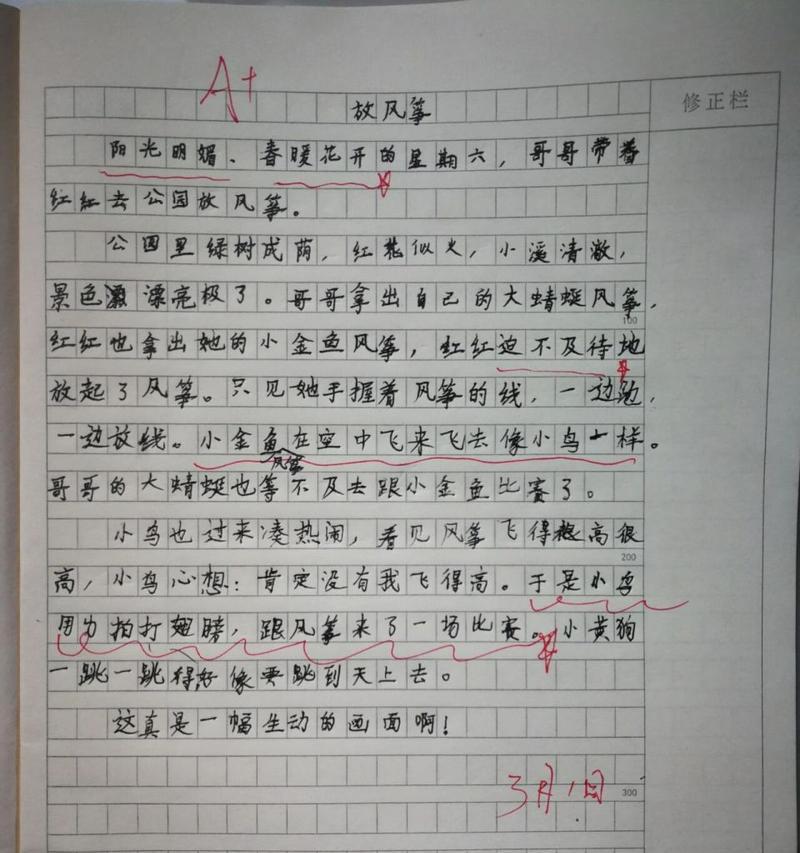 A+
放风筝
修正栏
阳光明媚、春暖花开的星期六，哥哥带着
红红去公园放风筝。
公园里绿树成荫，红花似火，小溪清澈，
景色漂亮极了。哥哥拿出自己的大蜻蜓风筝，
100
红红也拿出她的小金鱼风筝，红红迫不及待地
放起了风筝。只见她手握着风筝的线，一边跑，
一边放线。小金鱼在空中飞来飞去像小鸟一样。
风筝
哥哥的大蜻蜓也等不及去跟小金鱼比赛了。
小鸟也过来凑热闹，看见风筝飞得高很
200
高，小鸟心想：肯定没有我飞得高。于是小鸟
用力拍打翅膀，跟风筝来了一场比赛。小黄狗
一跳一跳得好像要跳到天上去。
这真是一幅生动的画面啊！
3月1日
300